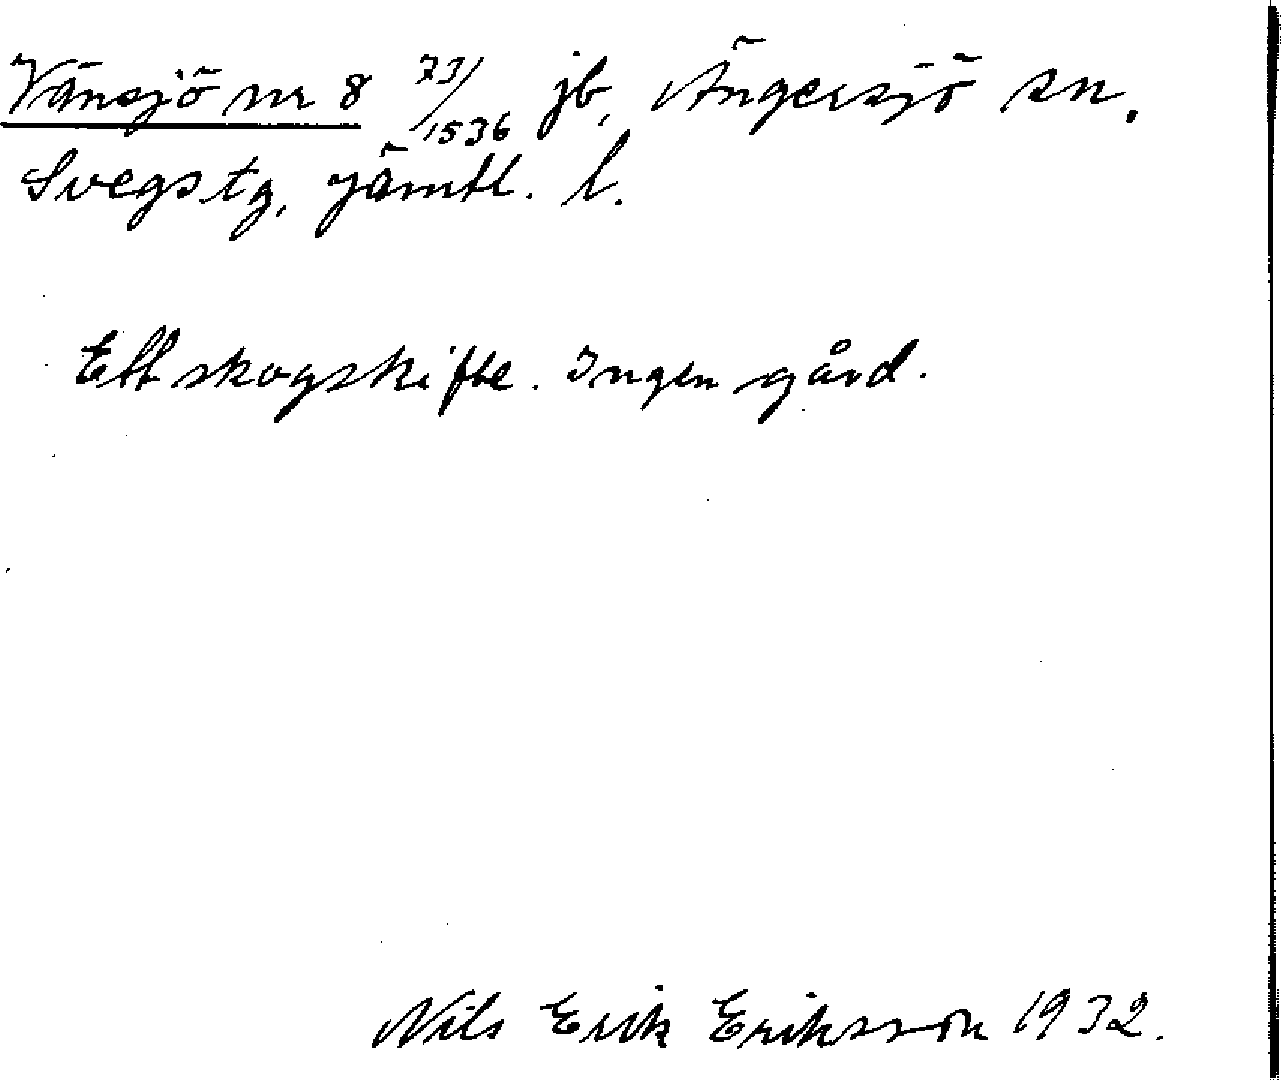 Vänsjö nr 8 73/1536 jb, Ängersjö sn.
Svegs tg, Jämtl. l.
Ett skogskifte. Ingen gård.
Nils Erik Eriksson 1932.